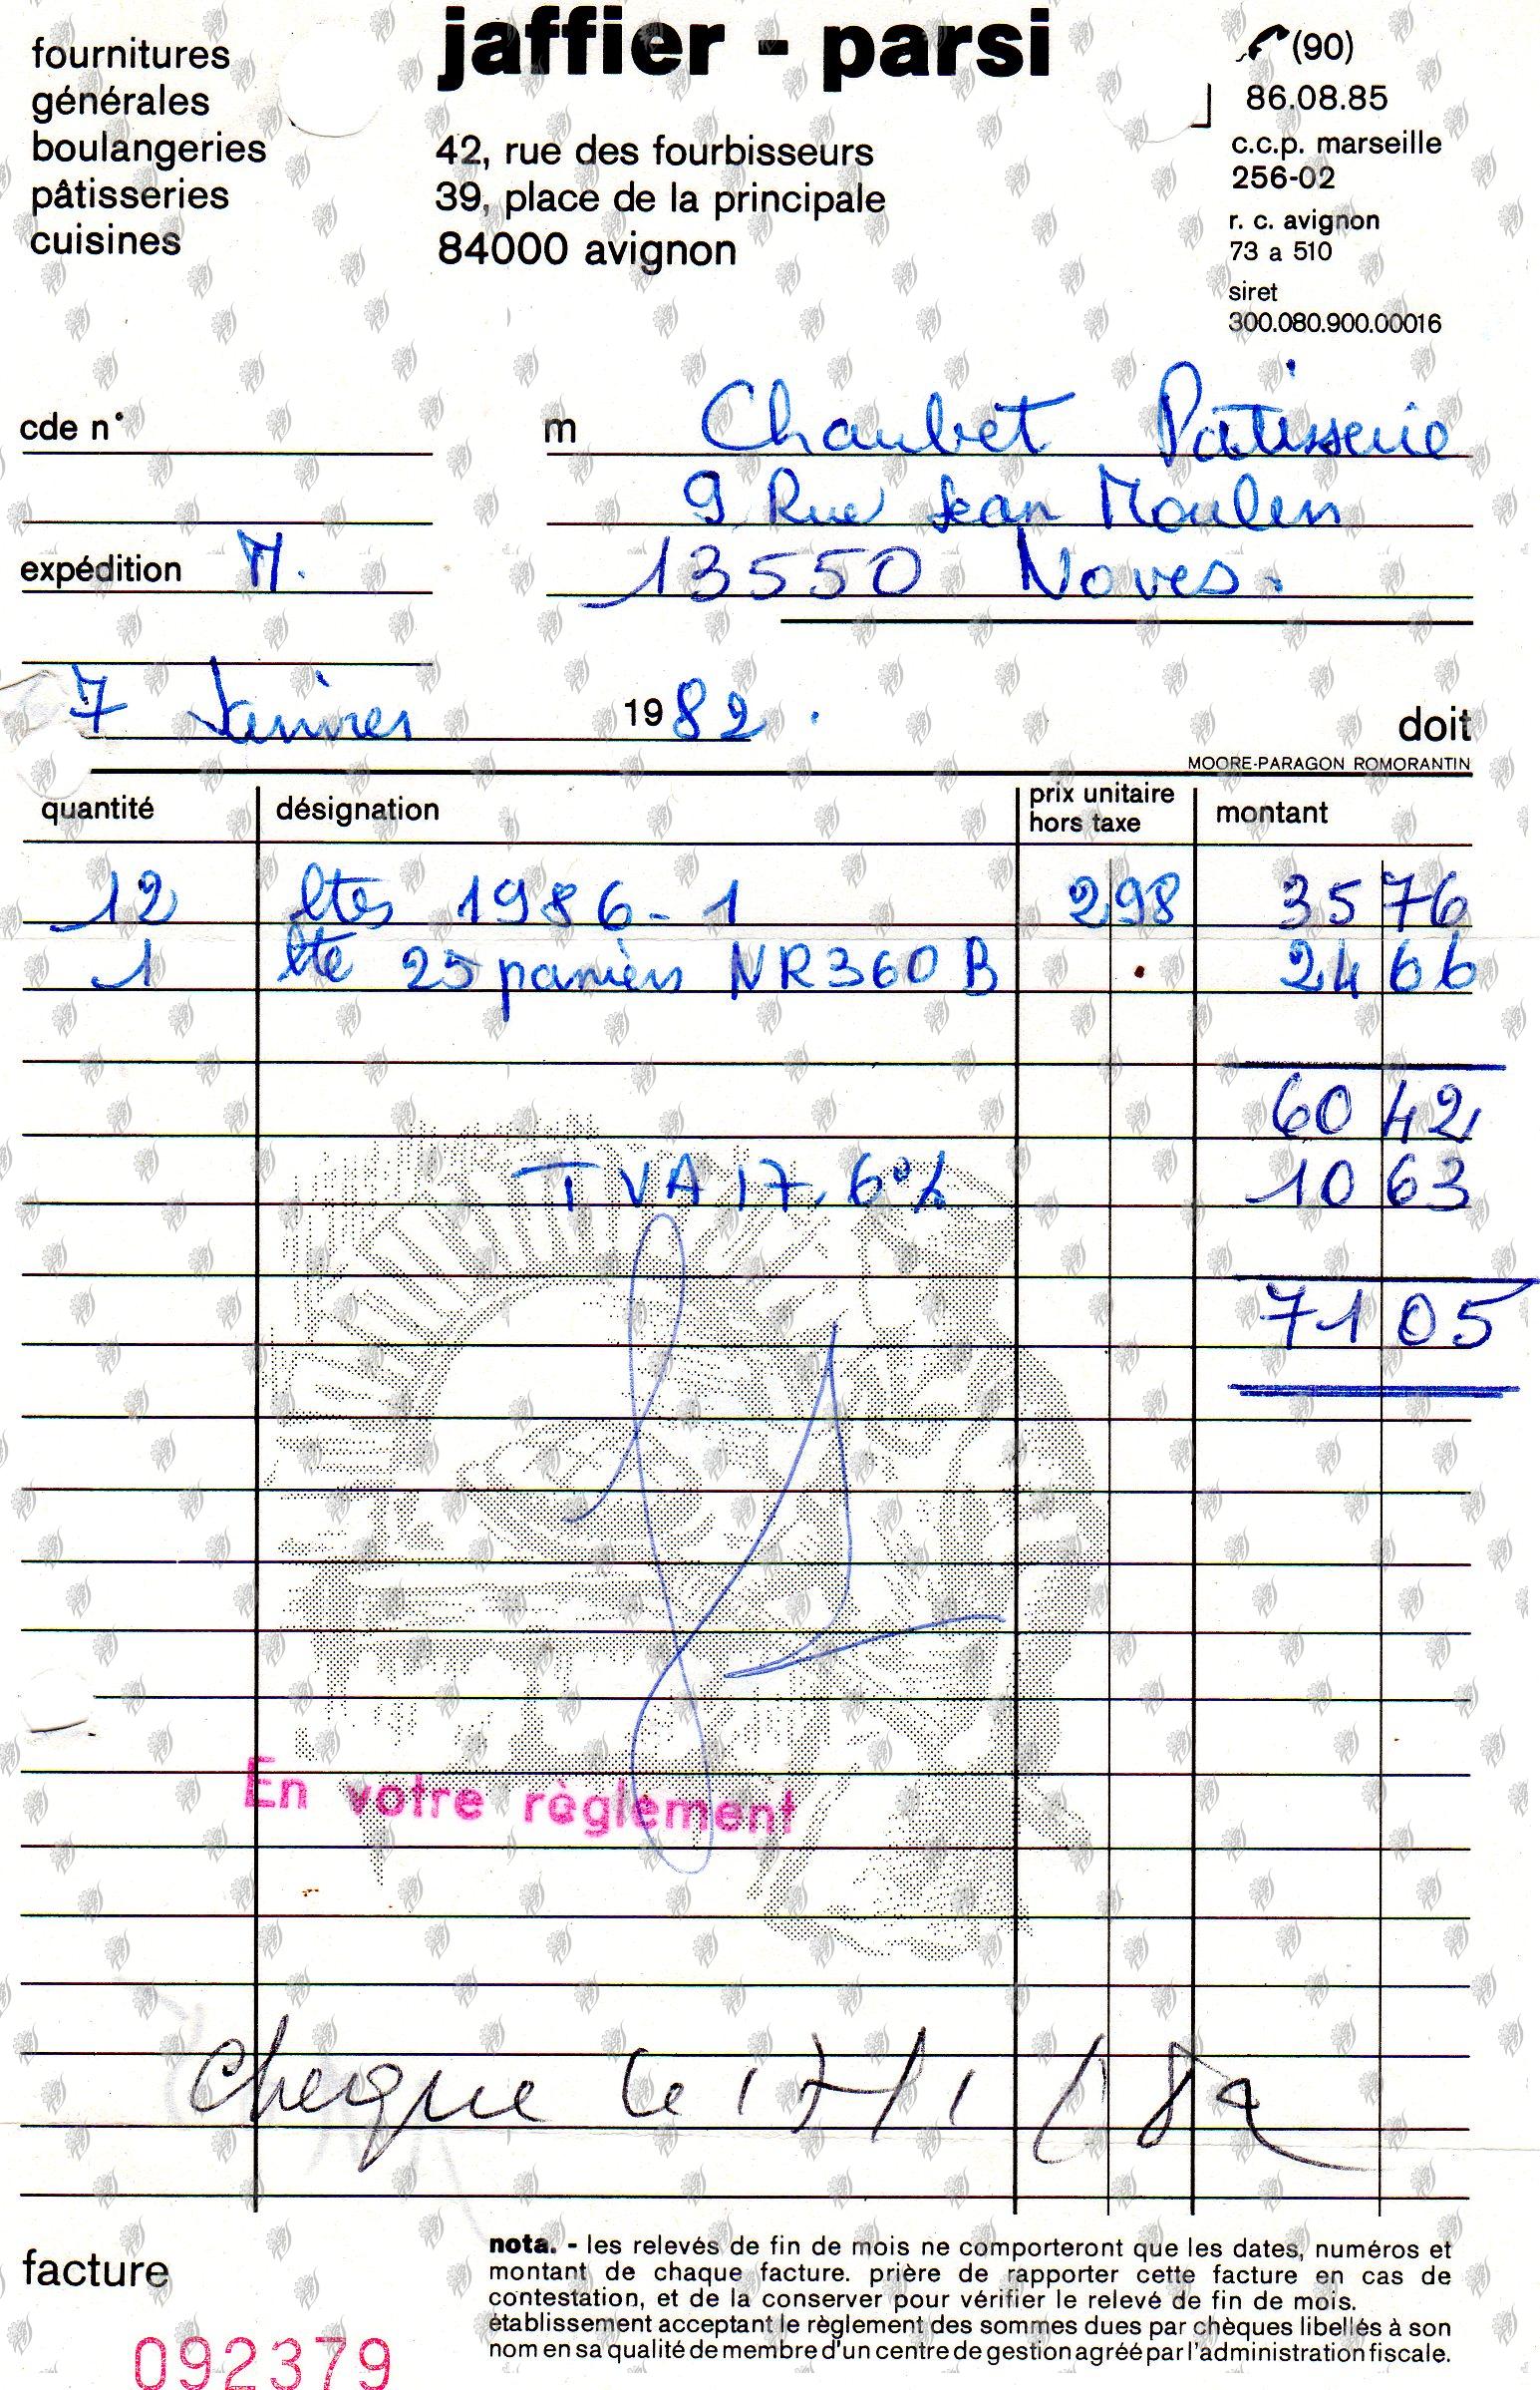 jaffier - parsi
fournitures
générales
boulangeries
pâtisseries
cuisines
42, rue des fourbisseurs
39, place de la principale
84000 avignon
(90)
86.08.85
c.c.p. marseille
256-02
r. c. avignon
73 a 510
siret
300.080.900.00016
cde n°
m Chaubet Patisserie
9 Rue Jean Moulin
expédition M.
13550 Noves.
7 Janvier 1982.
doit
MOORE-PARAGON ROMORANTIN
quantité désignation prix unitaire hors taxe montant
12 btes 1986-1 2 98 35 76
1 bte 25 paniers NR360B 24 66
60 42
TVA 17,6% 10 63
71 05
En votre règlement
Cheque le 17/1/82
facture
092379
nota. - les relevés de fin de mois ne comporteront que les dates, numéros et
montant de chaque facture. prière de rapporter cette facture en cas de
contestation, et de la conserver pour vérifier le relevé de fin de mois.
établissement acceptant le règlement des sommes dues par chèques libellés à son
nom en sa qualité de membre d'un centre de gestion agréé par l'administration fiscale.